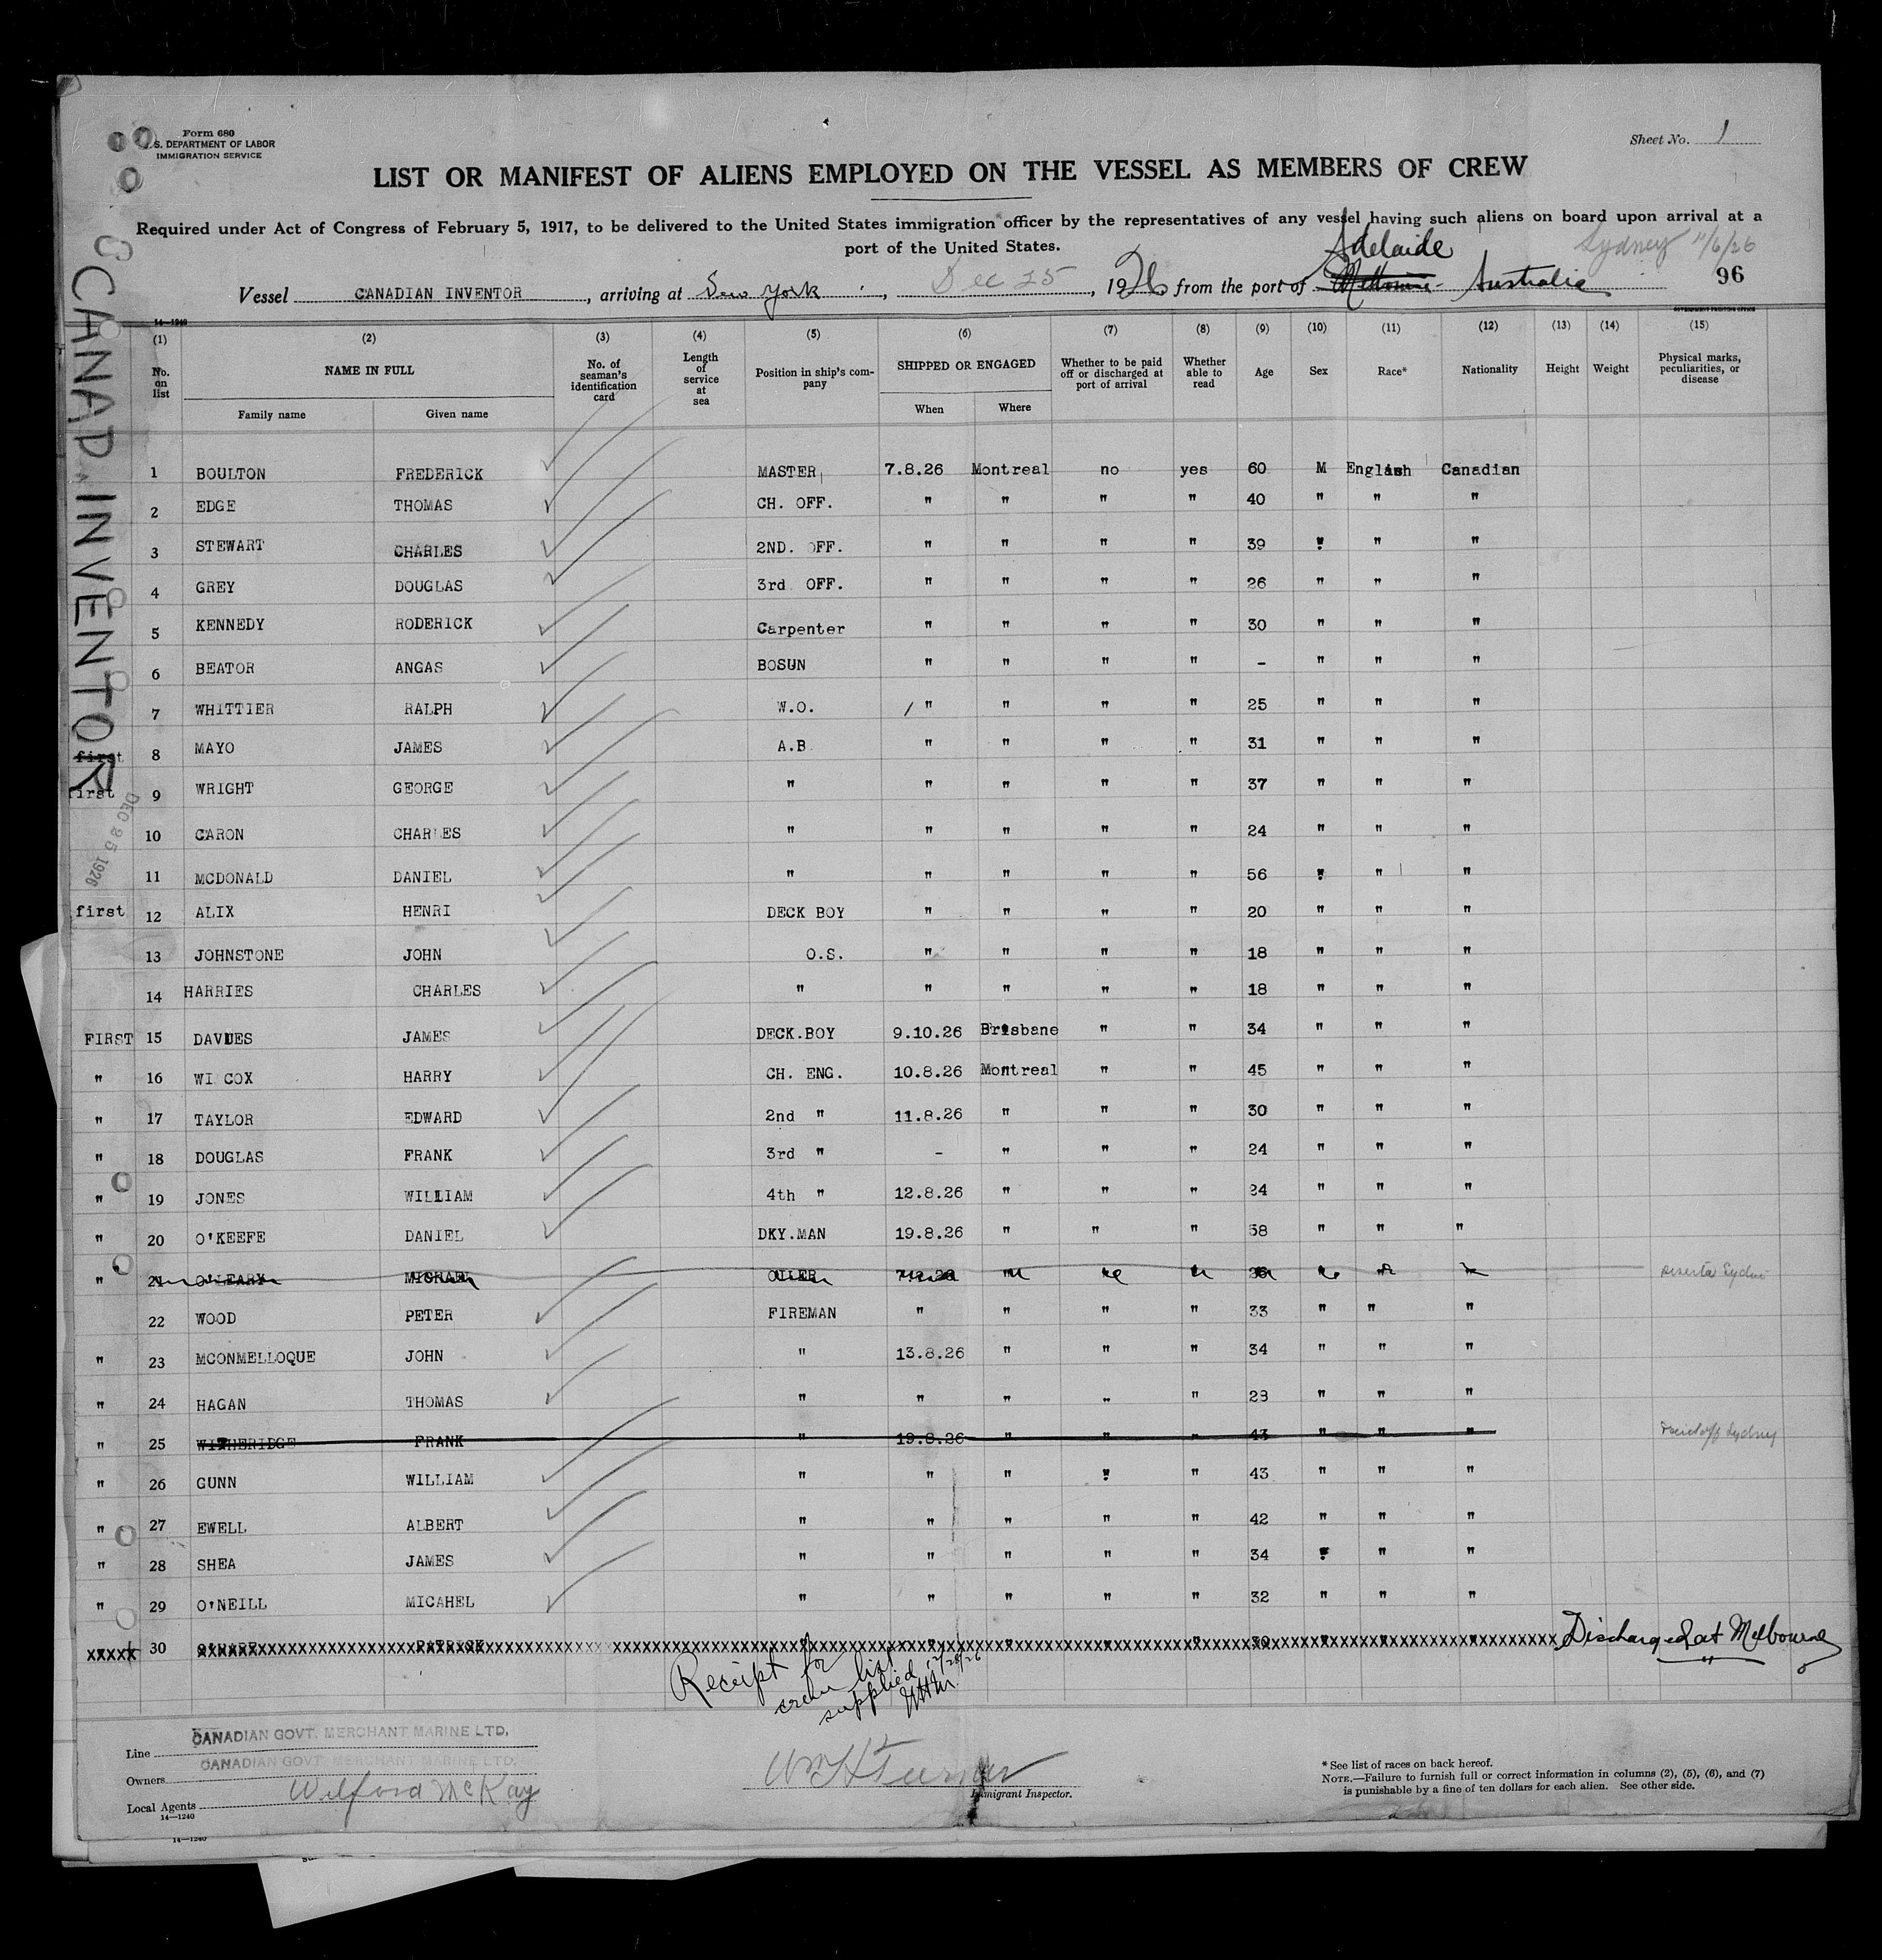 Form 680
U.S. DEPARTMENT OF LABOR
IMMIGRATION SERVICE
Sheet No. 1
LIST OR MANIFEST OF ALIENS EMPLOYED ON THE VESSEL AS MEMBERS OF CREW
Required under Act of Congress of February 5, 1917, to be delivered to the United States immigration officer by the representatives of any vessel having such aliens on board upon arrival at a
port of the United States.
Adelaide
Sydney 11/6/26
Vessel CANADIAN INVENTOR, arriving at New York, Dec 25, 1926 from the port of Melbourne Australia
96
CANAD. INVENTOR
DEC 25 1926
14—1240
GOVERNMENT PRINTING OFFICE
(1) (2) (3) (4) (5) (6) (7) (8) (9) (10) (11) (12) (13) (14) (15)
No. on list NAME IN FULL Family name Given name No. of seaman's identification card Length of service at sea Position in ship's company SHIPPED OR ENGAGED When Where Whether to be paid off or discharged at port of arrival Whether able to read Age Sex Race* Nationality Height Weight Physical marks, peculiarities, or disease
1 BOULTON FREDERICK MASTER 7.8.26 Montreal no yes 60 M English Canadian
2 EDGE THOMAS CH. OFF. " " " " 40 " " "
3 STEWART CHARLES 2ND. OFF. " " " " 39 " " "
4 GREY DOUGLAS 3rd OFF. " " " " 26 " " "
5 KENNEDY RODERICK Carpenter " " " " 30 " " "
6 BEATOR ANGAS BOSUN " " " " - " " "
7 WHITTIER RALPH W.O. " " " " 25 " " "
first 8 MAYO JAMES A.B " " " " 31 " " "
first 9 WRIGHT GEORGE " " " " " 37 " " "
10 CARON CHARLES " " " " " 24 " " "
11 MCDONALD DANIEL " " " " " 56 " " "
first 12 ALIX HENRI DECK BOY " " " " 20 " " "
13 JOHNSTONE JOHN O.S. " " " " 18 " " "
14 HARRIES CHARLES " " " " " 18 " " "
FIRST 15 DAVIES JAMES DECK.BOY 9.10.26 Brisbane " " 34 " " "
" 16 WI COX HARRY CH. ENG. 10.8.26 Montreal " " 45 " " "
" 17 TAYLOR EDWARD 2nd " 11.8.26 " " " 30 " " "
" 18 DOUGLAS FRANK 3rd " - " " " 24 " " "
" 19 JONES WILLIAM 4th " 12.8.26 " " " 24 " " "
" 20 O'KEEFE DANIEL DKY.MAN 19.8.26 " " " 58 " " "
" 21 O'LEARY MICHAEL OILER " " " " " "
22 WOOD PETER FIREMAN " " " " 33 " " "
" 23 MCONMELLOQUE JOHN " 13.8.26 " " " 34 " " "
" 24 HAGAN THOMAS " " " " " 28 " " "
" 25 WITHERIDGE FRANK " 19.8.26 " " " 43 " " "
" 26 GUNN WILLIAM " " " " " 43 " " "
" 27 EWELL ALBERT " " " " " 42 " " "
" 28 SHEA JAMES " " " " " 34 " " "
" 29 O'NEILL MICAHEL " " " " " 32 " " "
xxxxx 30 PATRICK Discharged at Melbourne
Receipt for
crew list
supplied 12/28/26
Line CANADIAN GOVT. MERCHANT MARINE LTD.
Owners CANADIAN GOVT. MERCHANT MARINE LTD.
Local Agents Wilford McKay
14—1240
Immigrant Inspector.
* See list of races on back hereof.
NOTE.—Failure to furnish full or correct information in columns (2), (5), (6), and (7)
is punishable by a fine of ten dollars for each alien. See other side.
14—1240